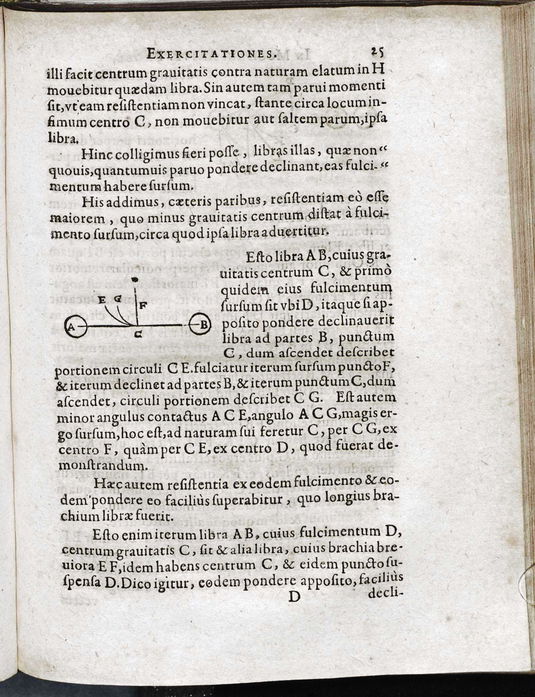 EXERCITATIONES. 25
illi facit centrum grauitatis contra naturam elatum in H
mouebitur quædam libra. Sin autem tam parui momenti
sit, vt eam resistentiam non vincat, stante circa locum in-
fimum centro C, non mouebitur aut saltem parum, ipsa
libra.
Hinc colligimus fieri posse, libras illas, quæ non “
quouis, quantumuis paruo pondere declinant, eas fulci- “
mentum habere sursum.
His addimus, cæteris paribus, resistentiam eò esse
maiorem, quo minus grauitatis centrum distat à fulci-
mento sursum, circa quod ipsa libra aduertitur.
Esto libra A B, cuius gra-
uitatis centrum C, & primò
quidem eius fulcimentum
sursum sit vbi D, itaque si ap-
posito pondere declinauerit
libra ad partes B, punctum
C, dum ascendet describet
E G F A B C
portionem circuli C E. fulciatur iterum sursum puncto F,
& iterum declinet ad partes B, & iterum punctum C, dum
ascendet, circuli portionem describet C G. Est autem
minor angulus contactus A C E, angulo A C G, magis er-
go sursum, hoc est, ad naturam sui feretur C, per C G, ex
centro F, quàm per C E, ex centro D, quod fuerat de-
monstrandum.
Hæc autem resistentia ex eodem fulcimento & eo-
dem pondere eo faciliùs superabitur, quo longius bra-
chium libræ fuerit.
Esto enim iterum libra A B, cuius fulcimentum D,
centrum grauitatis C, sit & alia libra, cuius brachia bre-
uiora E F, idem habens centrum C, & eidem puncto su-
spensa D. Dico igitur, eodem pondere apposito, faciliùs
D decli-